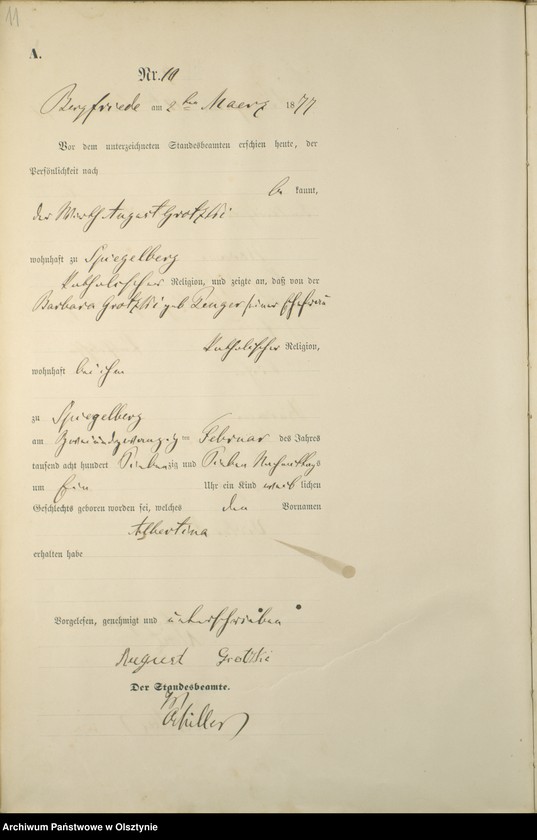 11
A.
Nr. 10
Bergfriede am 2ten Maerz 1877
Vor dem unterzeichneten Standesbeamten erschien heute, der
Persönlichkeit nach
be kannt,
der Wirth August Grotzki
wohnhaft zu Spiegelberg
katholischer Religion, und zeigte an, daß von der
Barbara Grotzki geb Zenger seiner Ehefrau
katholischer Religion,
wohnhaft bei ihm
zu Spiegelberg
am zweiundzwanzig ten Februar des Jahres
tausend acht hundert Siebenzig und Sieben Nachmittags
um Ein Uhr ein Kind weib lichen
Geschlechts geboren worden sei, welches den Vornamen
Albertina
erhalten habe
Vorgelesen, genehmigt und unterschrieben
August Grotzki
Der Standesbeamte.
Archiwum Państwowe w Olsztynie